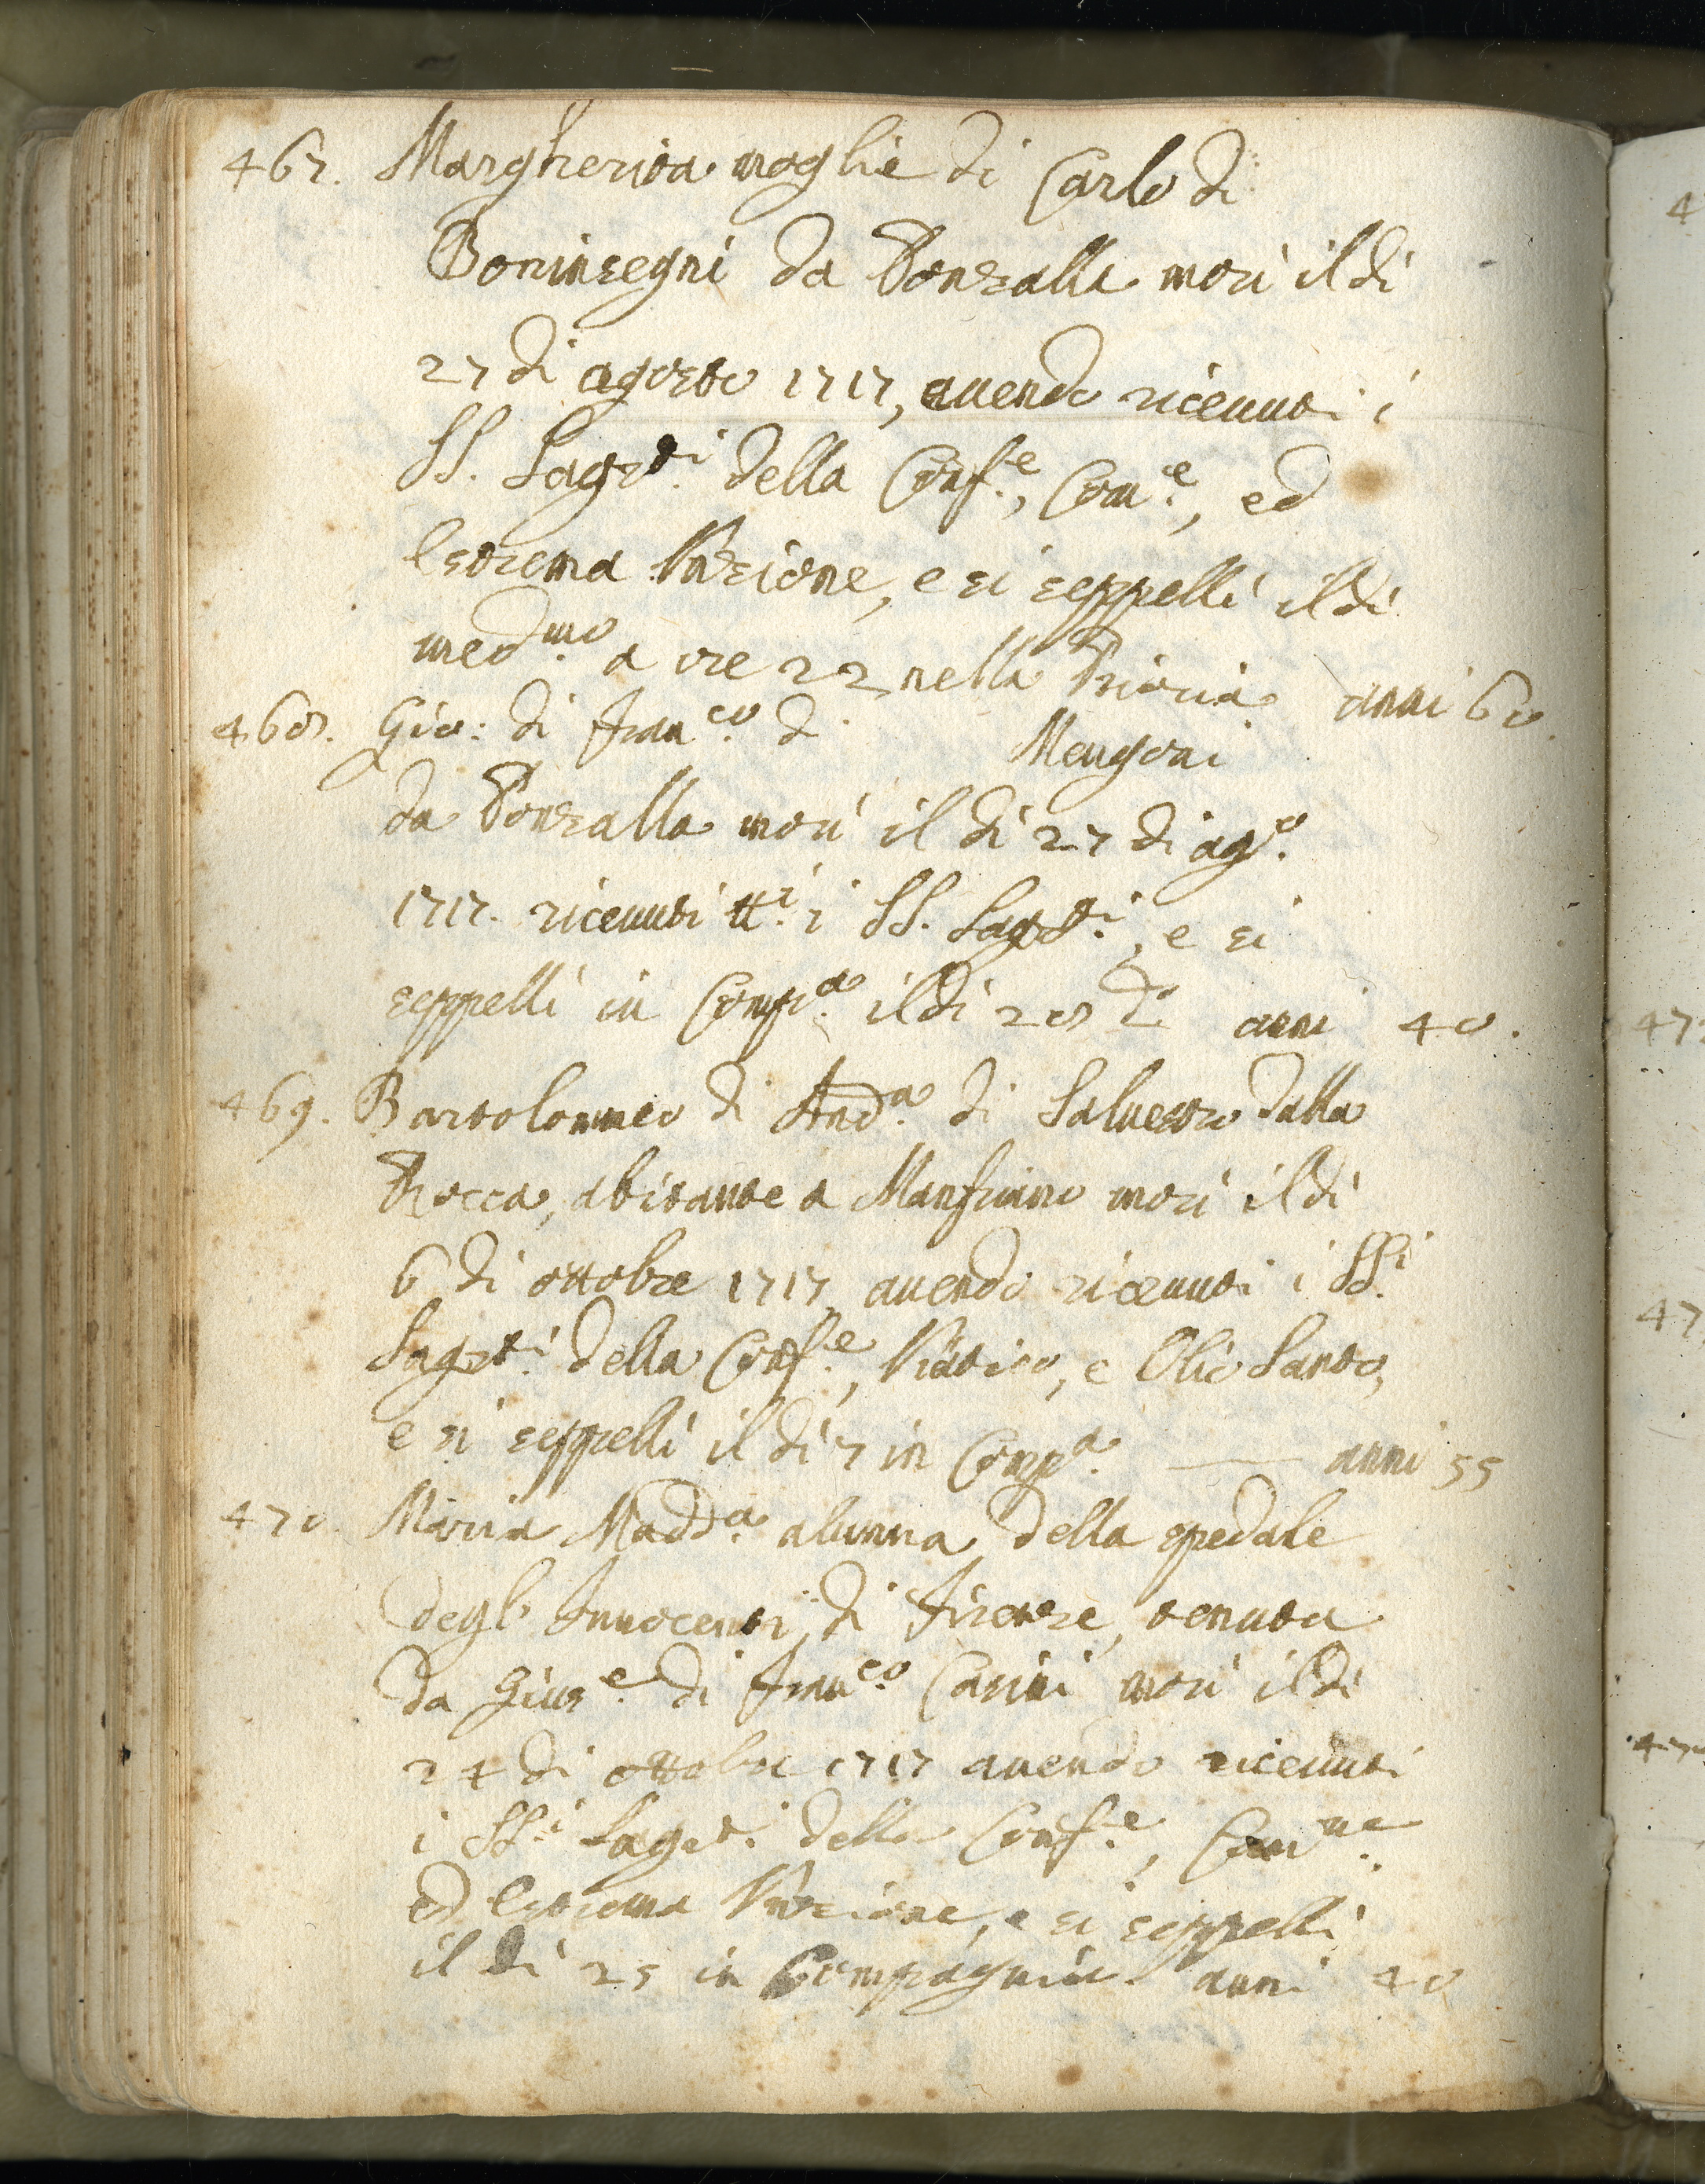 467. Margherita moglie di Carlo di
Boninsegni da Ponzalla morì il dì
27 di agosto 1717, avendo ricevuti i
SS. Sagrti. della Confe., Come., ed
Estrema Vnzione, e si seppellì il dì
medmo. a ore 22 nella Prioria anni 60.
468. Gio: di Franco. di Mengoni
da Ponzalla morì il dì 27 di ago.
1717. ricevuti tti. i SS. Sagrti., e si
seppellì in Compa. il dì 28 do. anni 40.
469. Bartolommeo di Anda. di Salvestro dalla
Rocca, abitante a Manfriano morì il dì
6 di ottobre 1717, avendo ricevuti i SSi.
Sagrti. della Confe., Viatico, e Olio Santo,
e si seppellì il dì 7 in Compa. — anni 55
470. Maria Madda. alunna della spedale
degl' Innocenti di Firenze, tenuta
da Giuse. di Franco. Casini morì il dì
24 di ottobre 1717 avendo ricevuti
i SSi. Sagrti. della Confe., Comne.
ed Estrema Vnzione, e si seppellì
il dì 25 in Compagnia anni 40
4
47
47
47